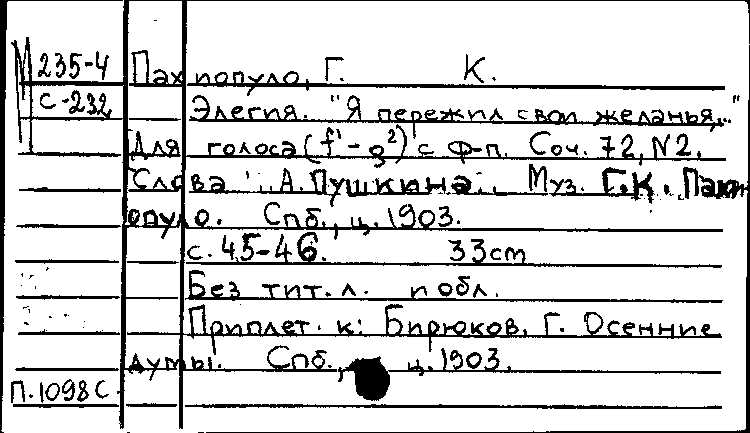 М 235-4
с-232
Пахпопуло, Г. К.
Элегия. "Я пережил свои желанья..."
Для голоса (f¹-g²) с ф-п. Соч. 72, N2.
Слова А. Пушкина. Муз. Г.К. Пахп
опуло. Спб., ц. 1903.
с. 45-46. 33cm
Без тит. л. и обл.
Приплет. к: Бирюков, Г. Осенние
думы. Спб., ц. 1903.
П.1098 С